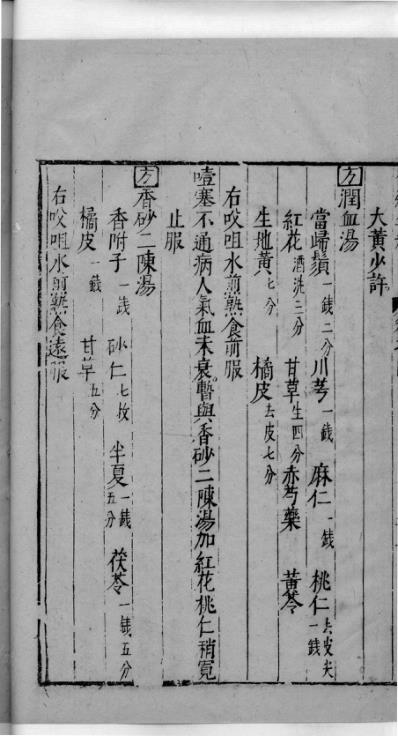 大黃少許
方潤血湯
當歸鬚一錢二分 川芎一錢 麻仁一錢 桃仁去皮尖一錢
紅花酒洗三分 甘草生四分 赤芍藥 黃芩
生地黃七分 橘皮去皮七分
右㕮咀水煎熟食前服
噎塞不通病人氣血未衰暫與香砂二陳湯加紅花桃仁稍寬
止服
方香砂二陳湯
香附子一錢 砂仁七枚 半夏一錢五分 茯苓一錢五分
橘皮一錢 甘草五分
右㕮咀水煎熟食遠服